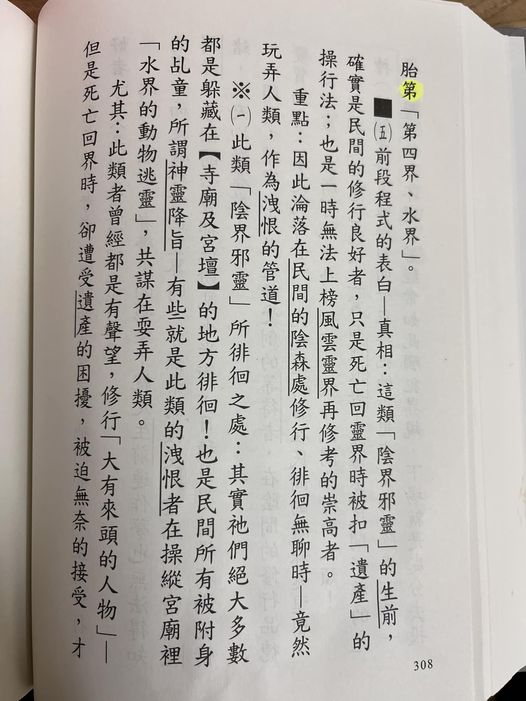 胎第「第四界、水界」。
■㈤前段程式的表白—真相：這類「陰界邪靈」的生前，
確實是民間的修行良好者，只是死亡回靈界時被扣「遺產」的
操行法；也是一時無法上榜風雲靈界再修考的崇高者。
重點：因此淪落在民間的陰森處修行、徘徊無聊時—竟然
玩弄人類，作為洩恨的管道！
※㈠此類「陰界邪靈」所徘徊之處：其實祂們絕大多數
都是躲藏在【寺廟及宮壇】的地方徘徊！也是民間所有被附身
的乩童，所謂神靈降旨—有些就是此類的洩恨者在操縱宮廟裡
「水界的動物逃靈」，共謀在耍弄人類。
尤其：此類者曾經都是有聲望，修行「大有來頭的人物」—
但是死亡回界時，卻遭受遺產的困擾，被迫無奈的接受，才
308